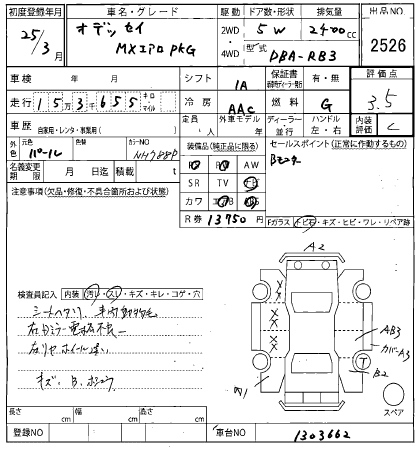 初度登録年月 車名・グレード 駆動 ドア数・形状 排気量 出品NO
25/3月 オデッセイ 2WD 5W 2400cc 2526
MXエアロ PKG 4WD 型式 DBA-RB3
車検 年 月 シフト IA 保証書 有・無 評価点
走行 153655 キロ・マイル 冷房 AAC 燃料 G 3.5
車歴 自家用・レンタ・事業用( ) 定員 人 外車モデル ディーラー・並行 ハンドル 左・右 内装評価 C
外色 元色 パール 色替 カラーNO NH788P 装備品(純正品に限る) セールスポイント(正常に作動するもの)
名義変更期限 月 日迄 積載 t AW Bモニター
注意事項(欠品・修復・不具合箇所および状態) SR TV ナビ
カワ
R券 13750円 Fガラス トビ石・キズ・ヒビ・ワレ・リペア跡
A2
検査員記入 内装 汚レ・スレ・キズ・キレ・コゲ・穴
シートヘタリ
右ドアミラー電格不良
右リヤホイール違い
キズ、B、ホシュウ
XX
XX
AB3
カバーA3
T
B2
スペア
長さ cm 幅 cm 高さ cm
登録NO 車台NO 1303662